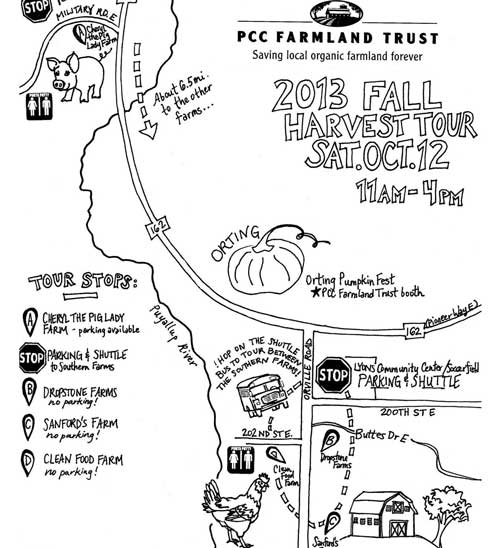 STOP
MILITARY RD. E
A
Cheryl
the Pig
Lady Farm
About 6.5 mi.
to the other
farms...
PCC FARMLAND TRUST
Saving local organic farmland forever
2013 FALL
HARVEST TOUR
SAT. OCT. 12
11AM - 4PM
162
ORTING
Orting Pumpkin Fest
★PCC Farmland Trust booth
TOUR STOPS:
A CHERYL THE PIG LADY
FARM - parking available
STOP PARKING & SHUTTLE
to Southern Farms
B DROPSTONE FARMS
no parking!
C SANFORD'S FARM
no parking!
D CLEAN FOOD FARM
no parking!
Puyallup River
162
Pioneer Way E
HOP ON THE SHUTTLE
BUS TO TOUR BETWEEN
THE SOUTHERN FARMS!
ORVILLE ROAD
STOP
Lyons Community Center/Soccerfield
PARKING & SHUTTLE
200TH ST E
202ND ST E.
Buttes Dr E
B
Dropstone
Farms
Clean
Food
Farm
C
Sanford's